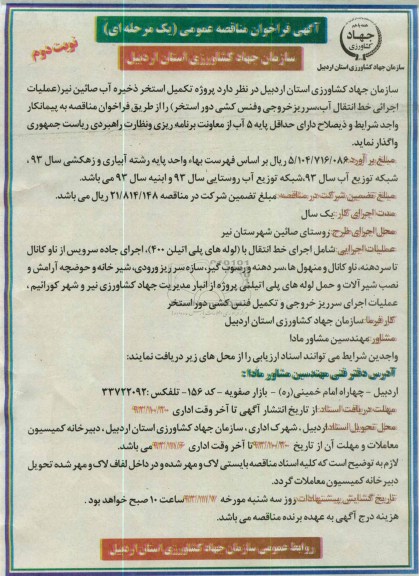 آگهی فراخوان مناقصه عمومی (یک مرحله ای)
سازمان جهاد کشاورزی استان اردبیل
نوبت دوم
جهاد
کشاورزی
سازمان جهاد کشاورزی استان اردبیل
سازمان جهاد کشاورزی استان اردبیل در نظر دارد پروژه تکمیل استخر ذخیره آب صائین نیر(عملیات
اجرائی خط انتقال آب،سرریزخروجی وفنس کشی دور استخر) را از طریق فراخوان مناقصه به پیمانکار
واجد شرایط و ذیصلاح دارای حداقل پایه ۵ آب از معاونت برنامه ریزی ونظارت راهبردی ریاست جمهوری
واگذار نماید.
مبلغ بر آورد:۵/۱۰۴/۷۱۶/۰۸۶ ریال بر اساس فهرست بهاء واحد پایه رشته آبیاری و زهکشی سال ۹۳ ،
شبکه توزیع آب سال ۹۳،شبکه توزیع آب روستایی سال ۹۳ و ابنیه سال ۹۳ می باشد.
مبلغ تضمین شرکت در مناقصه: مبلغ تضمین شرکت در مناقصه ۲۱/۸۱۴/۱۴۸ ریال می باشد.
مدت اجرای کار: یک سال
محل اجرای طرح: روستای صائین شهرستان نیر
عملیات اجرایی: شامل اجرای خط انتقال با (لوله های پلی اتیلن ۴۰۰)، اجرای جاده سرویس از ناو کانال
تا سردهنه، ناو کانال و منهول ها ،سر دهنه و رسوب گیر، سازه سرریز ورودی، شیر خانه و حوضچه آرامش و
نصب شیر آلات و حمل لوله های پلی اتیلنی پروژه از انبار مدیریت جهاد کشاورزی نیر و شهر کورائیم ،
عملیات اجرای سرریز خروجی و تکمیل فنس کشی دور استخر
کار فرما: سازمان جهاد کشاورزی استان اردبیل
مشاور: مهندسین مشاور مادا
واجدین شرایط می توانند اسناد ارزیابی را از محل های زیر دریافت نمایند:
آدرس دفتر فنی مهندسین مشاور مادا:
اردبیل - چهاراه امام خمینی(ره) - بازار صفویه - کد ۱۵۶- تلفکس :۳۳۷۲۲۰۹۲
مهلت دریافت اسناد: از تاریخ انتشار آگهی تا آخر وقت اداری
محل تحویل اسناد: اردبیل ، شهرک اداری ، سازمان جهاد کشاورزی استان اردبیل ، دبیرخانه کمیسیون
معاملات و مهلت آن از تاریخ تا آخر وقت اداری می باشد.
لازم به توضیح است که کلیه اسناد مناقصه بایستی لاک و مهر شده و در داخل لفاف لاک و مهر شده تحویل
دبیرخانه کمیسیون معاملات گردد.
تاریخ گشایش پیشنهادات: روز سه شنبه مورخه ساعت ۱۰ صبح خواهد بود .
هزینه درج آگهی به عهده برنده مناقصه می باشد.
روابط عمومی سازمان جهاد کشاورزی استان اردبیل